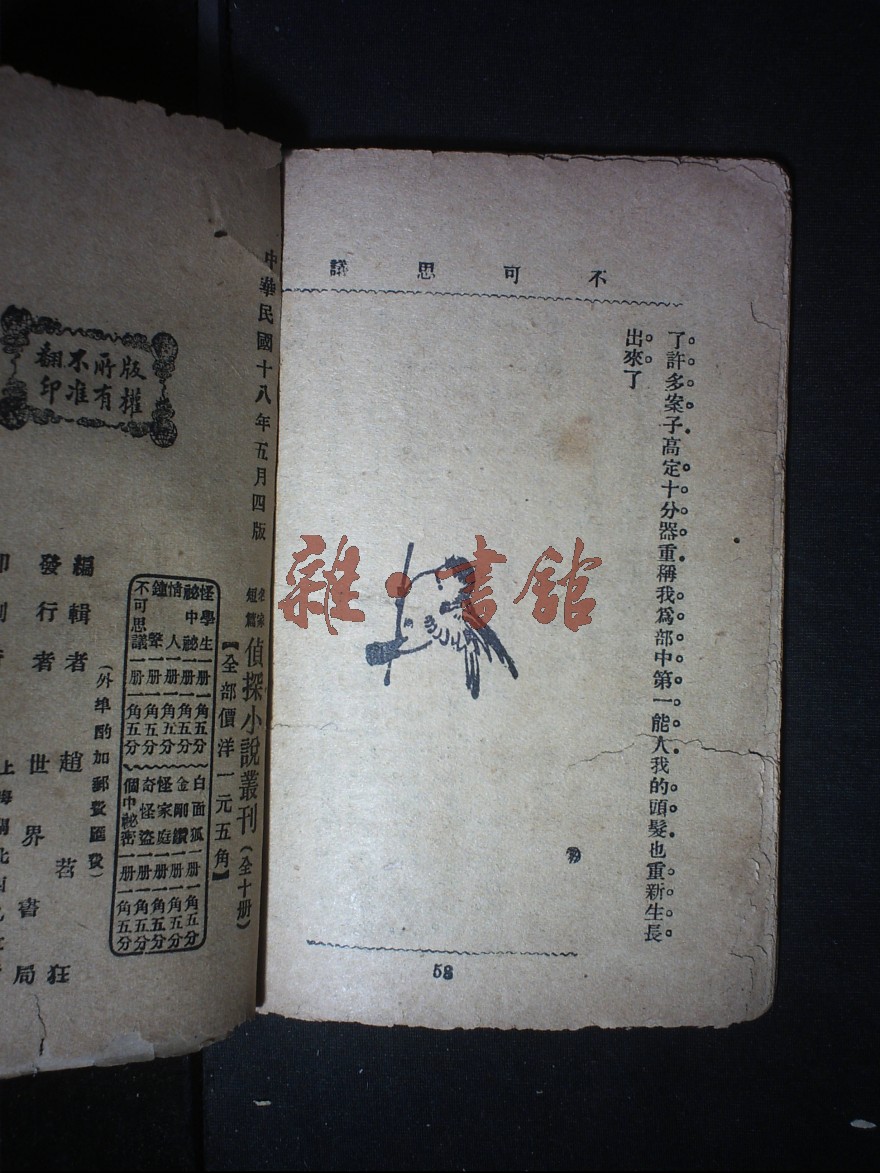 不可思議
了許多案子高定十分器重稱我爲部中第一能人我的頭髮也重新生長
出來了
58
雜·書館
中華民國十八年五月四版
版權所有
不准翻印
名家短篇偵探小說叢刊(全十册)
【全部價洋一元五角】
怪學生一册一角五分
祕中祕一册一角五分
情人一册一角五分
鐘聲一册一角五分
不可思議一册一角五分
白面狐一册一角五分
金剛鑽一册一角五分
怪家庭一册一角五分
奇怪盜一册一角五分
個中祕密一册一角五分
(外埠酌加郵費匯費)
編輯者 趙苕狂
發行者 世界書局